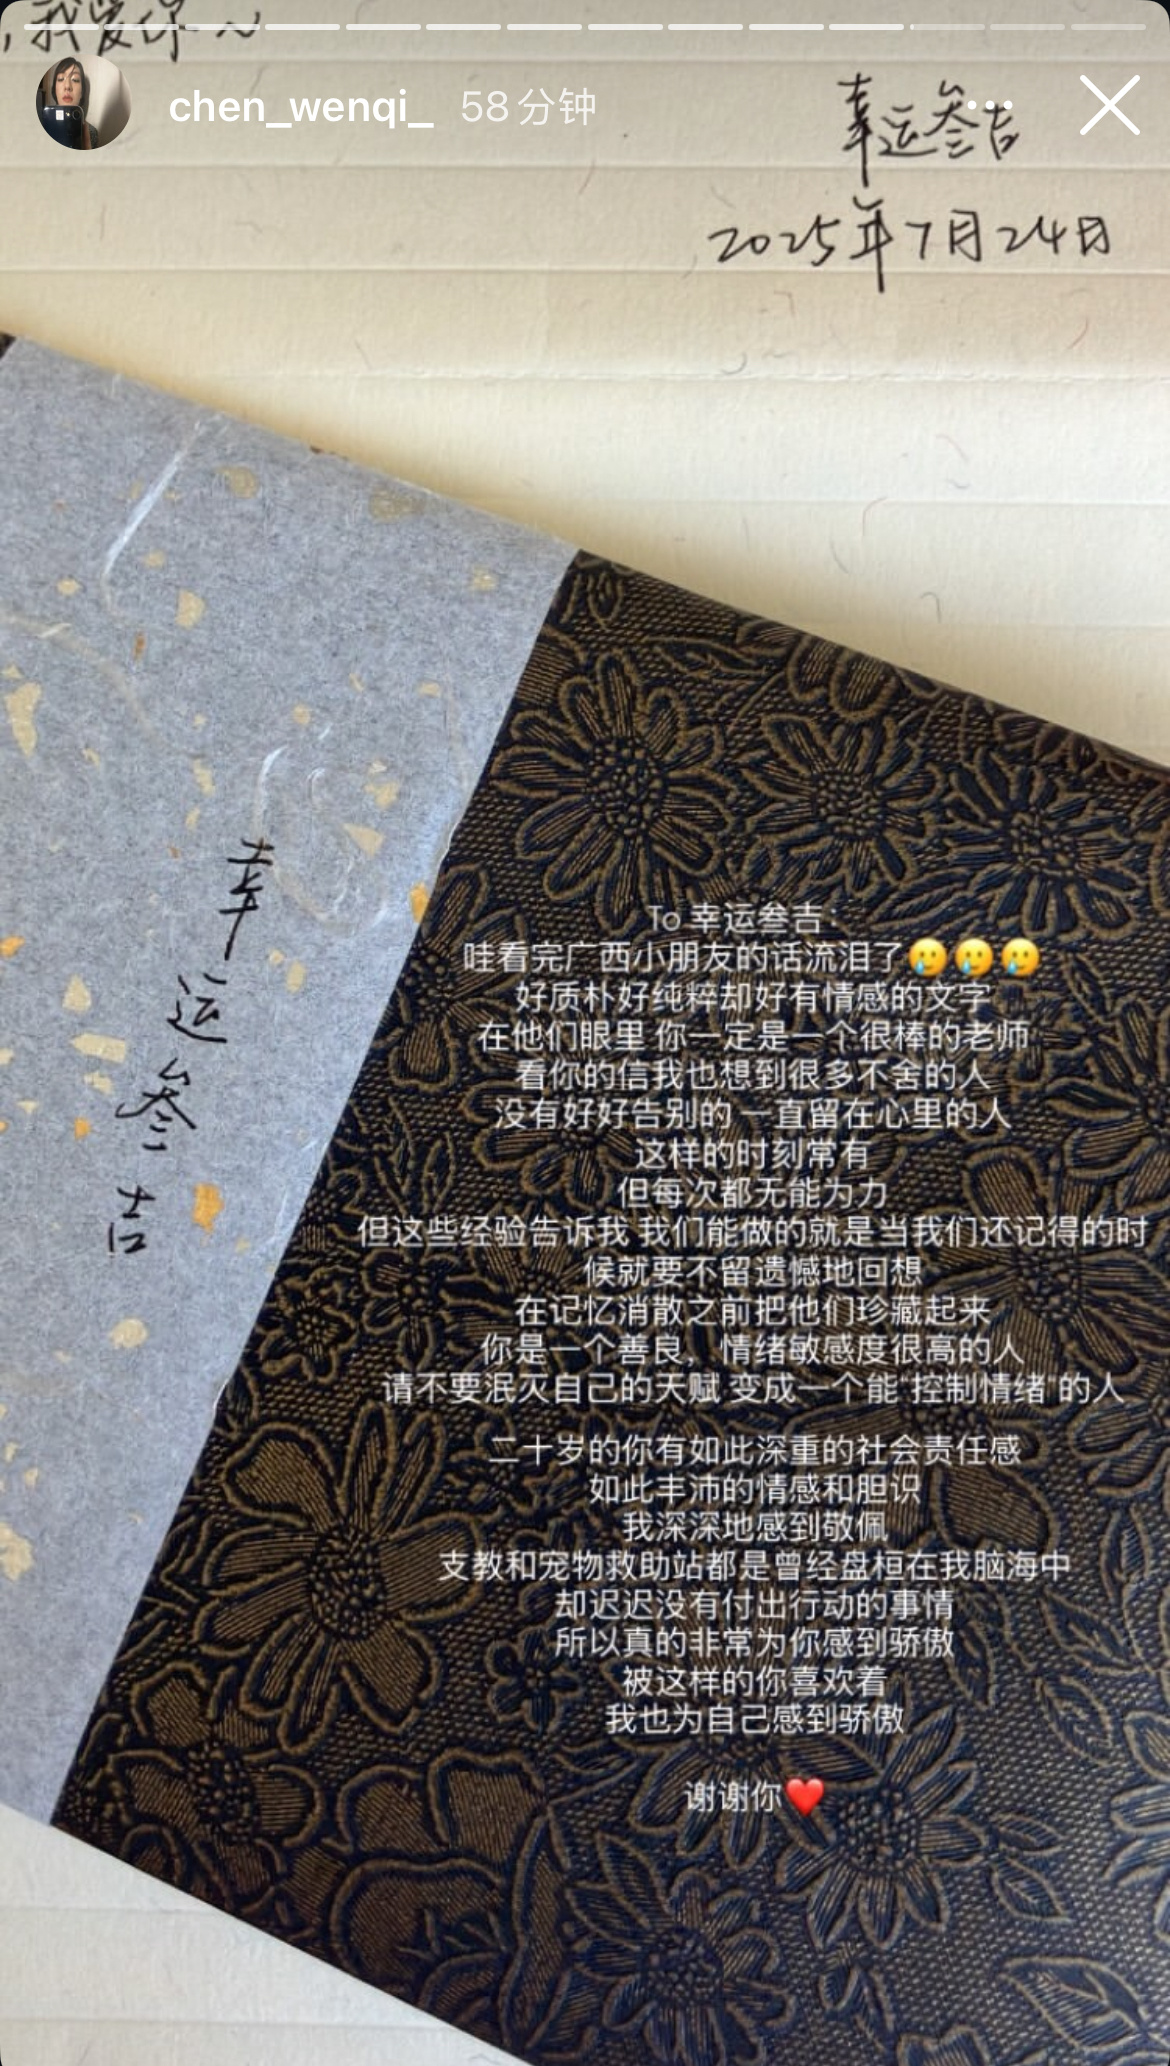 ,我爱你~
chen_wenqi_ 58分钟
幸运叁吉
2025年7月24日
幸
运
叁
吉
To 幸运叁吉:
哇看完广西小朋友的话流泪了🥲🥲🥲
好质朴好纯粹却好有情感的文字
在他们眼里 你一定是一个很棒的老师
看你的信我也想到很多不舍的人
没有好好告别的 一直留在心里的人
这样的时刻常有
但每次都无能为力
但这些经验告诉我 我们能做的就是当我们还记得的时
候就要不留遗憾地回想
在记忆消散之前把他们珍藏起来
你是一个善良，情绪敏感度很高的人
请不要泯灭自己的天赋 变成一个能“控制情绪”的人
二十岁的你有如此深重的社会责任感
如此丰沛的情感和胆识
我深深地感到敬佩
支教和宠物救助站都是曾经盘桓在我脑海中
却迟迟没有付出行动的事情
所以真的非常为你感到骄傲
被这样的你喜欢着
我也为自己感到骄傲
谢谢你❤️